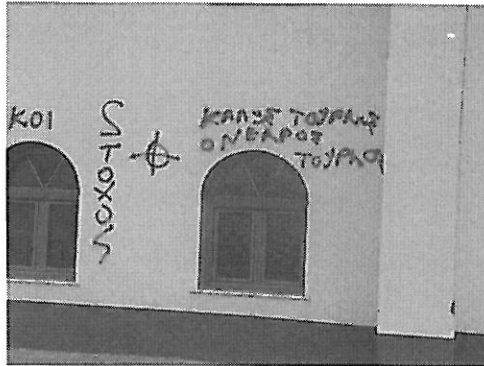 ΚΟΙ
ΣΤΟΧΟΣ
ΚΑΛΟΣ ΤΟΥΡΚΟΣ
Ο ΝΕΚΡΟΣ
ΤΟΥΡΚΟΣ